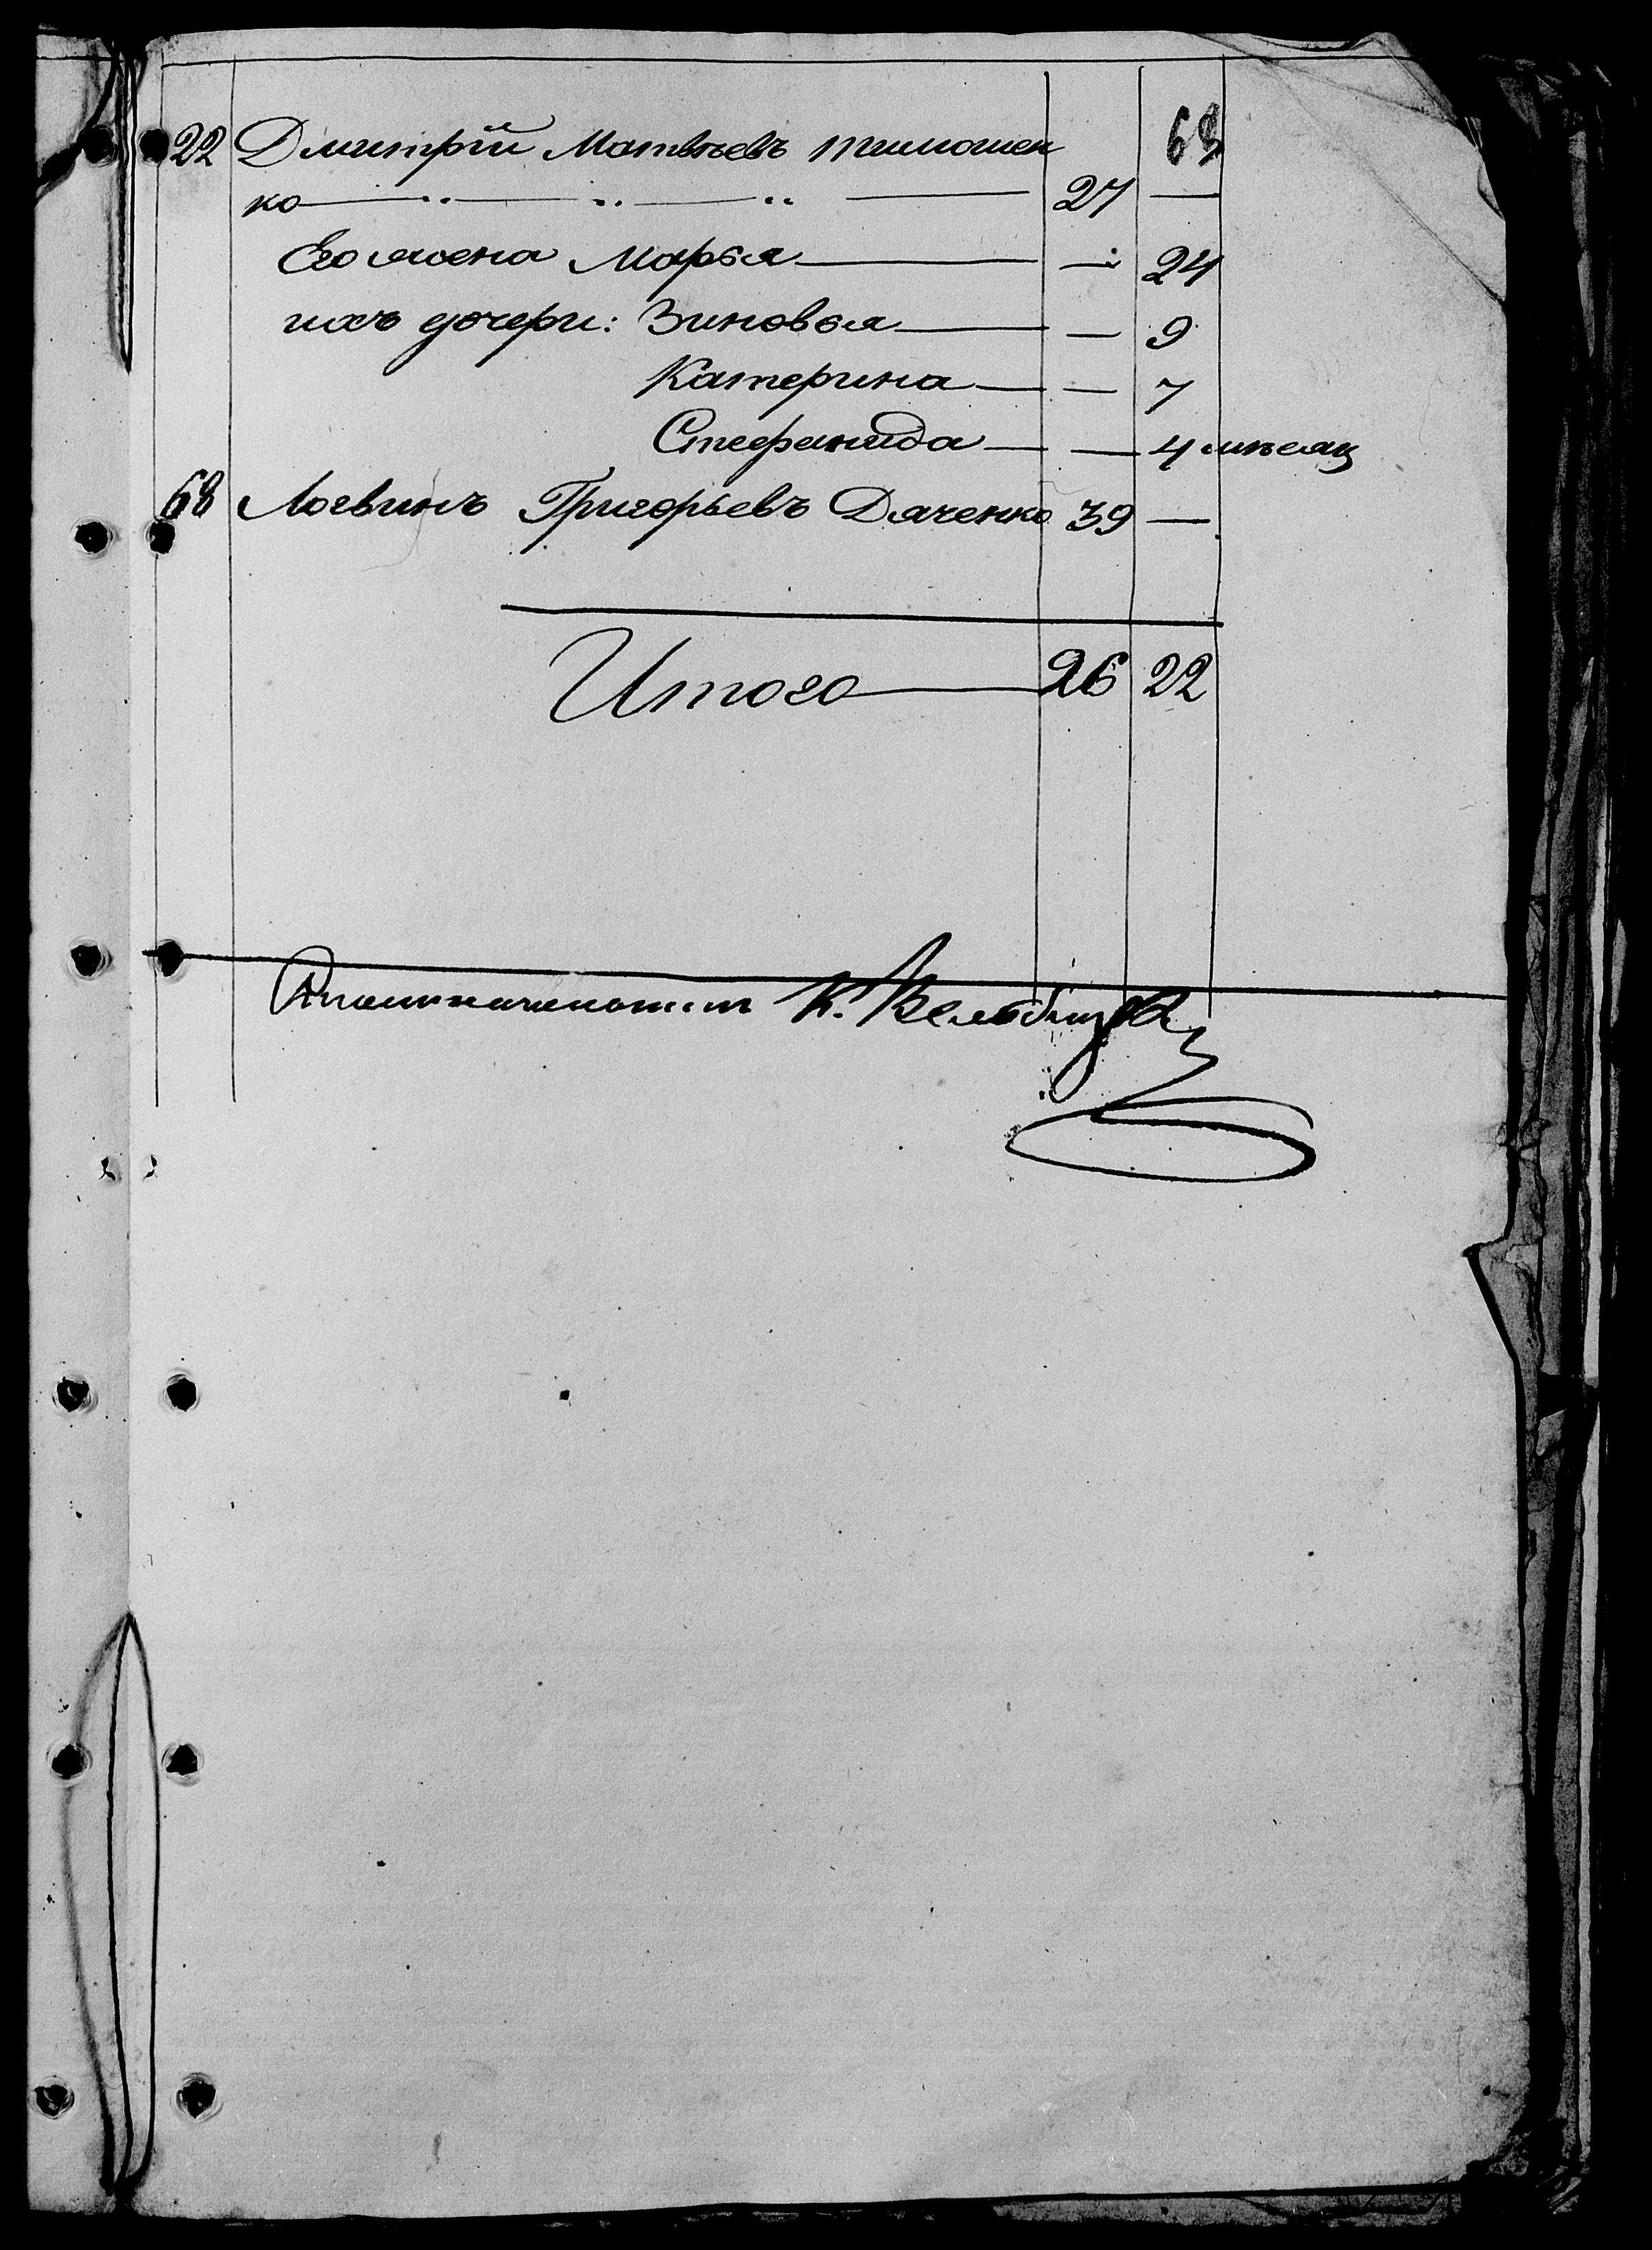 68
22 Дмитрій Матвѣевъ Тимошен
ко 27 —
Его жена Марья — 24
ихъ дочери: Зиновья — 9
Катерина — 7
Стефанида — 4 мѣсяц
68 Логвинъ Григорьевъ Дяченко 39 —
Итого 26 22
К.